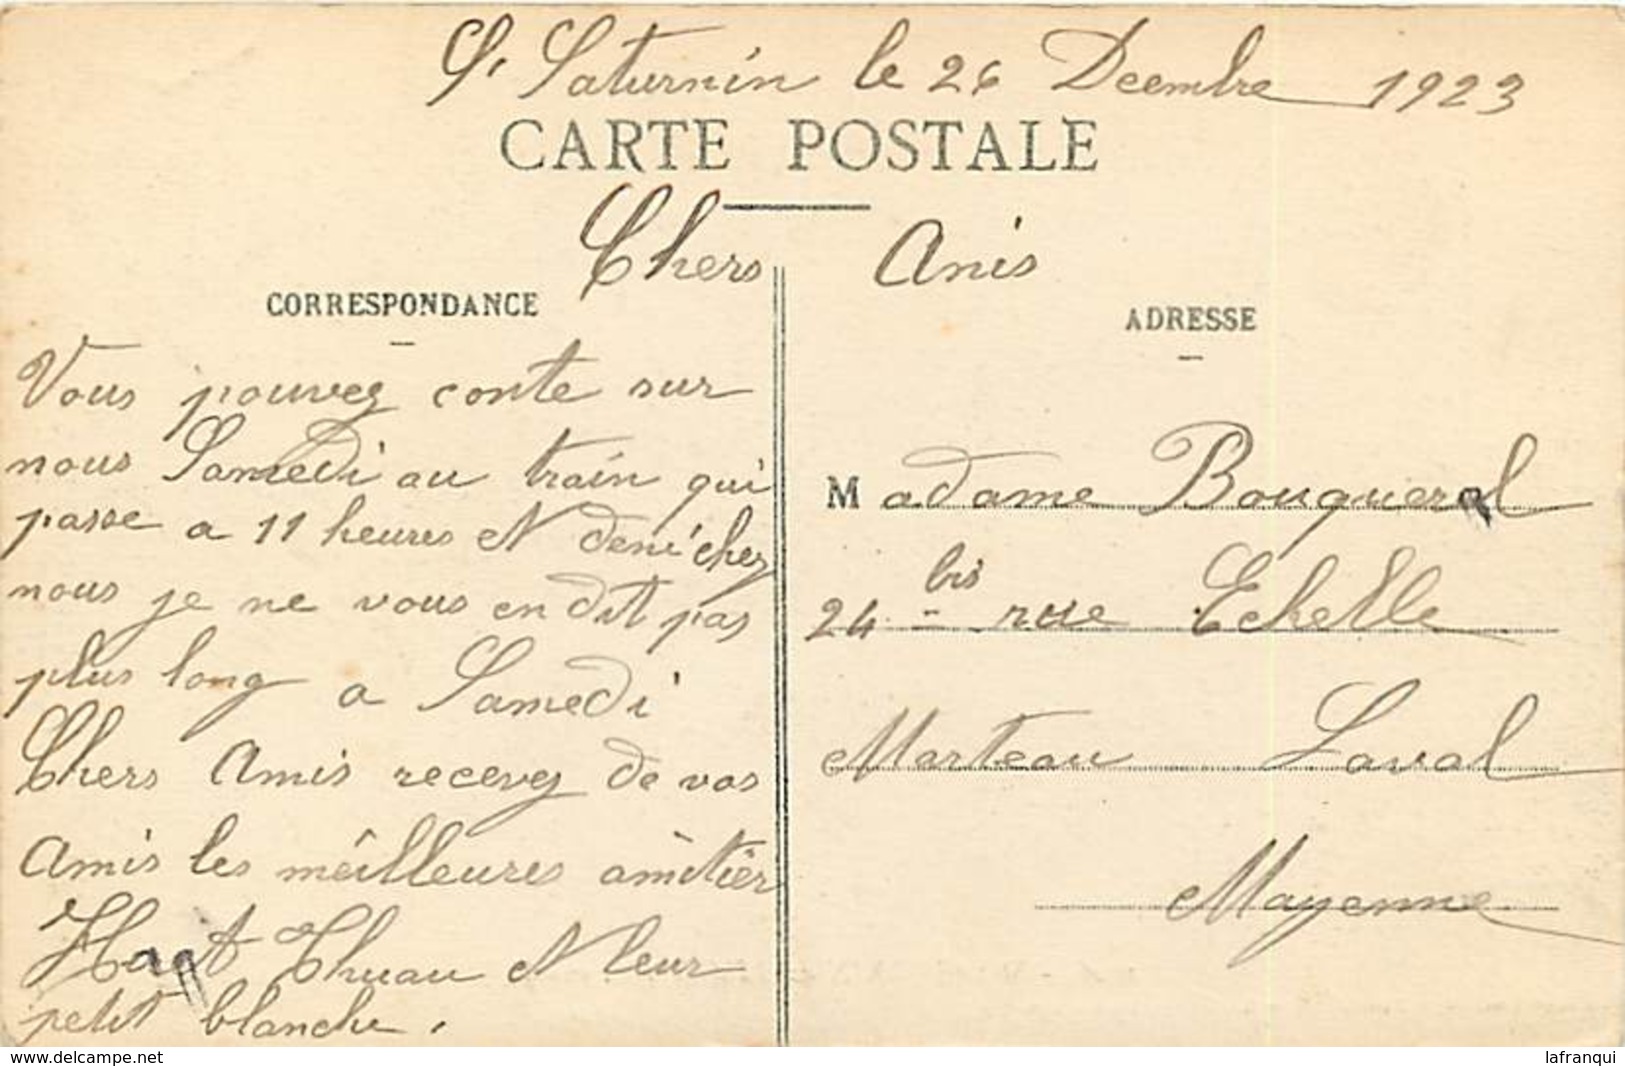 St Saturnin le 26 Decembre 1923
CARTE POSTALE
Chers Amis
CORRESPONDANCE
Vous pouvez conte sur
nous Samedi au train qui
passe a 11 heures et denichez
nous je ne vous en dit pas
plus long a Samedi
Chers Amis recevez de vos
Amis les meilleures amitiér
Thuau et leur
petit blanche.
ADRESSE
Madame Bouquerel
24 bis rue Echelle
Marteau Laval
Mayenne
www.delcampe.net
lafranqui